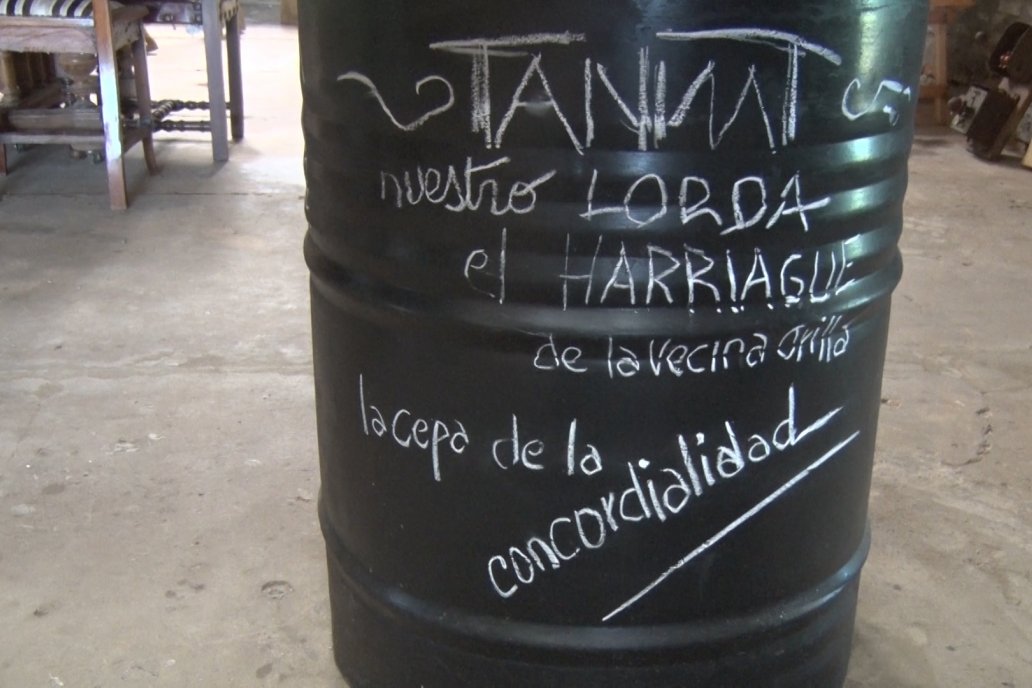 TANNAT
nuestro LORDA
el HARRIAGUE
de la vecina orilla
la cepa de la
concordialidad